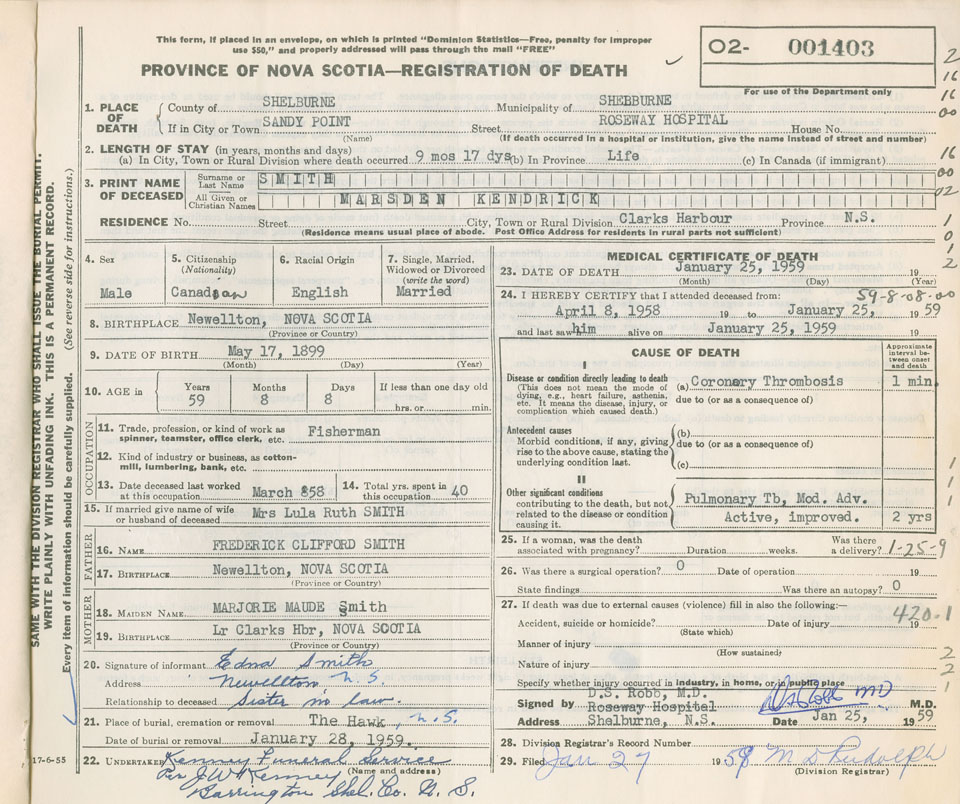 This form, if placed in an envelope, on which is printed "Dominion Statistics—Free, penalty for improper
use $50," and properly addressed will pass through the mail "FREE"
PROVINCE OF NOVA SCOTIA—REGISTRATION OF DEATH
O2- 001403
For use of the Department only
SAME WITH THE DIVISION REGISTRAR WHO SHALL ISSUE THE BURIAL PERMIT.
WRITE PLAINLY WITH UNFADING INK. THIS IS A PERMANENT RECORD.
Every item of information should be carefully supplied. (See reverse side for instructions.)
1. PLACE OF DEATH
County of SHELBURNE Municipality of SHEBBURNE
If in City or Town SANDY POINT Street ROSEWAY HOSPITAL House No.
(Name) (If death occurred in a hospital or institution, give the name instead of street and number)
2. LENGTH OF STAY (in years, months and days)
(a) In City, Town or Rural Division where death occurred 9 mos 17 dys (b) In Province Life (c) In Canada (if immigrant)
3. PRINT NAME OF DECEASED
Surname or Last Name SMITH
All Given or Christian Names MARSDEN KENDRICK
RESIDENCE No. Street City, Town or Rural Division Clarks Harbour Province N.S.
(Residence means usual place of abode. Post Office Address for residents in rural parts not sufficient)
4. Sex
Male
5. Citizenship
(Nationality)
Canadian
6. Racial Origin
English
7. Single, Married,
Widowed or Divorced
(write the word)
Married
8. BIRTHPLACE Newellton, NOVA SCOTIA
(Province or Country)
9. DATE OF BIRTH May 17, 1899
(Month) (Day) (Year)
10. AGE in Years Months Days If less than one day old
59 8 8 hrs. or min.
OCCUPATION
11. Trade, profession, or kind of work as
spinner, teamster, office clerk, etc. Fisherman
12. Kind of industry or business, as cotton-
mill, lumbering, bank, etc.
13. Date deceased last worked
at this occupation March 858
14. Total yrs. spent in
this occupation 40
15. If married give name of wife
or husband of deceased Mrs Lula Ruth SMITH
FATHER
16. NAME FREDERICK CLIFFORD SMITH
17. BIRTHPLACE Newellton, NOVA SCOTIA
(Province or Country)
MOTHER
18. MAIDEN NAME MARJORIE MAUDE Smith
19. BIRTHPLACE Lr Clarks Hbr, NOVA SCOTIA
(Province or Country)
20. Signature of informant Edna Smith
Address Newellton N.S.
Relationship to deceased Sister in law.
21. Place of burial, cremation or removal The Hawk, N.S.
Date of burial or removal January 28, 1959.
22. UNDERTAKER Kenney Funeral Service
(Name and address)
Per J.W Kenney
Barrington Shel. Co. N. S.
17-6-55
MEDICAL CERTIFICATE OF DEATH
23. DATE OF DEATH January 25, 1959 19
(Month) (Day) (Year)
24. I HEREBY CERTIFY that I attended deceased from: 59-8-08-00
April 8, 1958 19 to January 25, 19 59
and last saw him alive on January 25, 1959 19
CAUSE OF DEATH
Approximate
interval be-
tween onset
and death
I
Disease or condition directly leading to death
(This does not mean the mode of
dying, e.g., heart failure, asthenia,
etc. It means the disease, injury, or
complication which caused death.)
(a) Coronary Thrombosis 1 min.
due to (or as a consequence of)
Antecedent causes
Morbid conditions, if any, giving
rise to the above cause, stating the
underlying condition last.
(b)
due to (or as a consequence of)
(c)
II
Other significant conditions
contributing to the death, but not
related to the disease or condition
causing it.
Pulmonary Tb, Mod. Adv.
Active, improved. 2 yrs
25. If a woman, was the death Was there
associated with pregnancy? Duration weeks. a delivery? 1-25-9
26. Was there a surgical operation? 0 Date of operation 19
State findings Was there an autopsy? 0
27. If death was due to external causes (violence) fill in also the following:—
420.1
Accident, suicide or homicide? Date of injury 19
(State which)
Manner of injury
(How sustained)
Nature of injury
Specify whether injury occurred in industry, in home, or in public place
Signed by D.S. Robb, M.D. DS Robb MD M.D.
Roseway Hospital
Address Shelburne, N.S. Date Jan 25, 19 59
28. Division Registrar's Record Number
29. Filed Jan 27 19 59 M D Rudolph
(Division Registrar)
2
16
16
00
16
00
02
1
0
1
2
1
1
1
2
2
1